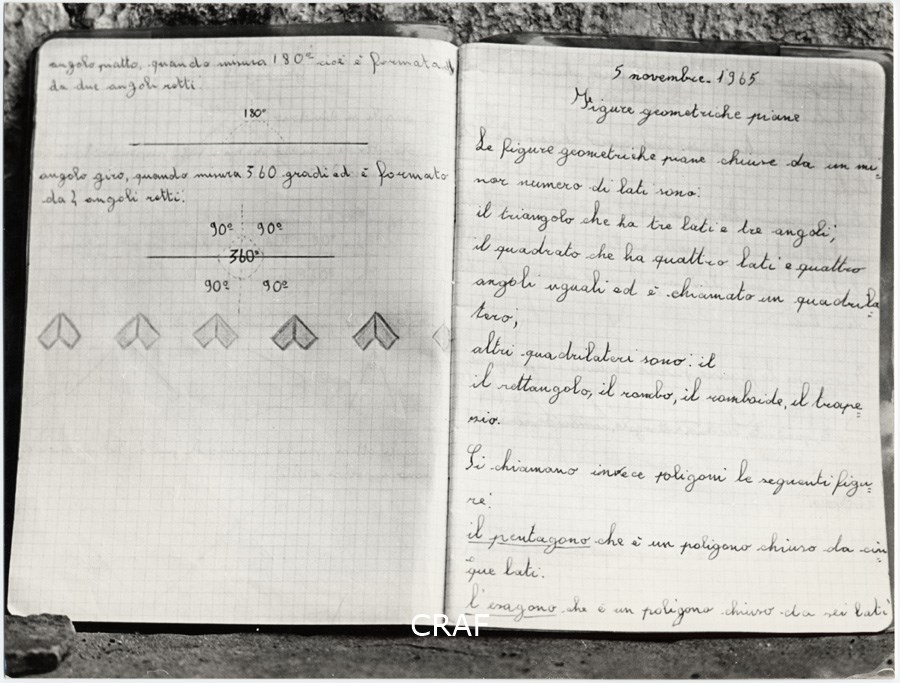 angolo piatto, quando misura 180º cioè è formata
da due angoli retti.
180º
angolo giro, quando misura 360 gradi ed è formato
da 4 angoli retti.
90º 90º
360º
90º 90º
5 novembre. 1965
Figure geometriche piane
Le figure geometriche piane chiuse da un mi=
nor numero di lati sono:
il triangolo che ha tre lati e tre angoli;
il quadrato che ha quattro lati e quattro
angoli uguali ed è chiamato un quadrila=
tero;
altri quadrilateri sono: il
il rettangolo, il rombo, il romboide, il trape=
zio.
Si chiamano invece poligoni le seguenti figu=
re:
il pentagono che è un poligono chiuso da cin=
que lati.
l'esagono che è un poligono chiuso da sei lati
CRAF